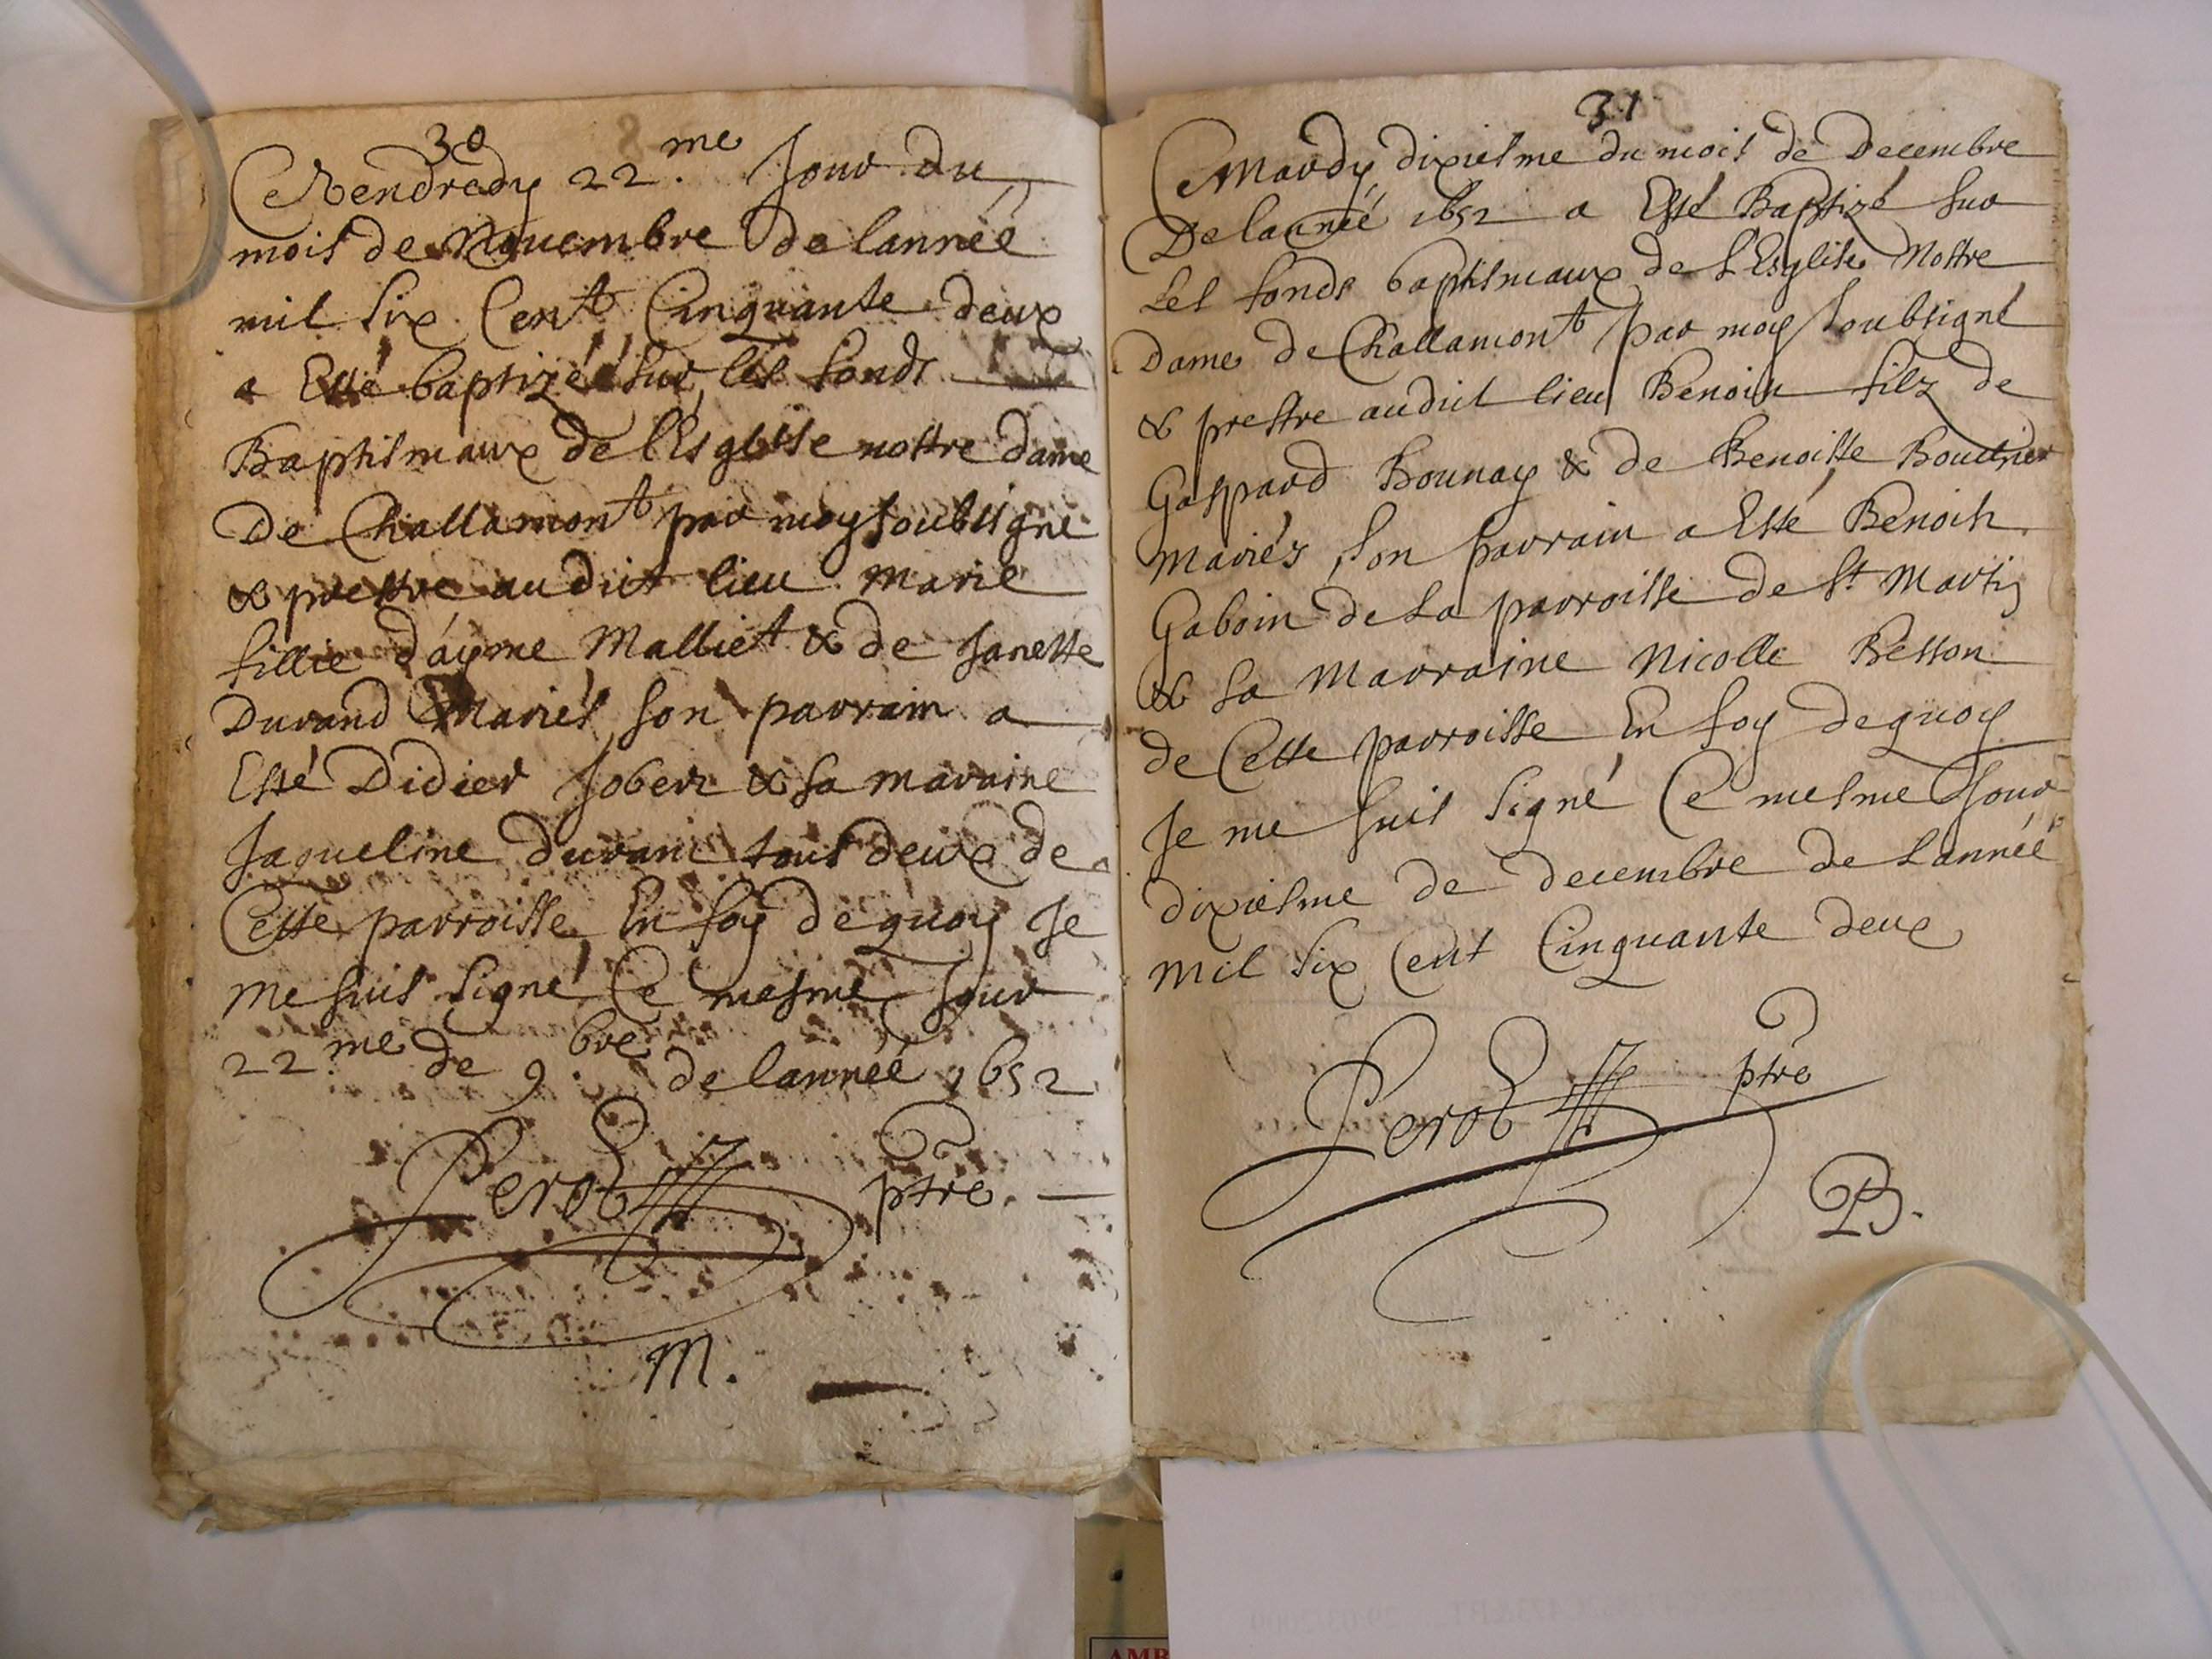 30
Ce Vendredy 22.me Jour du
mois de Nouembre de lannéé
mil six Cent Cinquante deux
a Esté baptizéé sur les fonds
Baptismaux de lEsglise nostre dame
de Challamont par moy soubsigné
& prestre audict lieu Marie
fillie d'ayme Malliet & de Janette
Durand Mariés son parrain a
Esté Didier Jobert & sa maraine
Jaqueline durant tous deux de
Cette parroisse, En foy de quoy Je
me suis signé Ce mesme Jour
22.me de 9.bre de lannéé 1652
Perod ptre.
M.
31
Ce Mardy dixiesme du mois de Decembre
De lannéé 1652 a Esté Baptizé sur
Les fonds baptismaux de L'Esglise Nostre
Dame de Challamont par moy soubsigné
& prestre audict lieu Benoist filz de
Gaspard Bounay & de Benoiste
Mariés, son parrain a Esté Benoist
Gaboin de La parroisse de St Martin
& sa Marraine Nicolle Besson
de Cette parroisse En foy de quoy
Je me suis signé Ce mesme Jour
dixiesme de decembre de Lannéé
Mil six Cent Cinquante deux
Perod ptre
B.
AMB